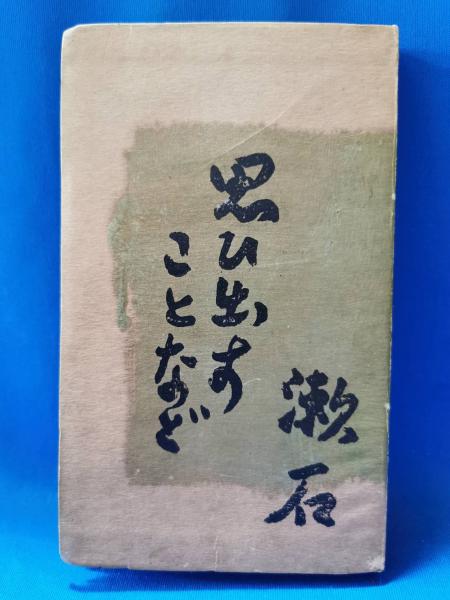 思ひ出す
ことなど
漱石